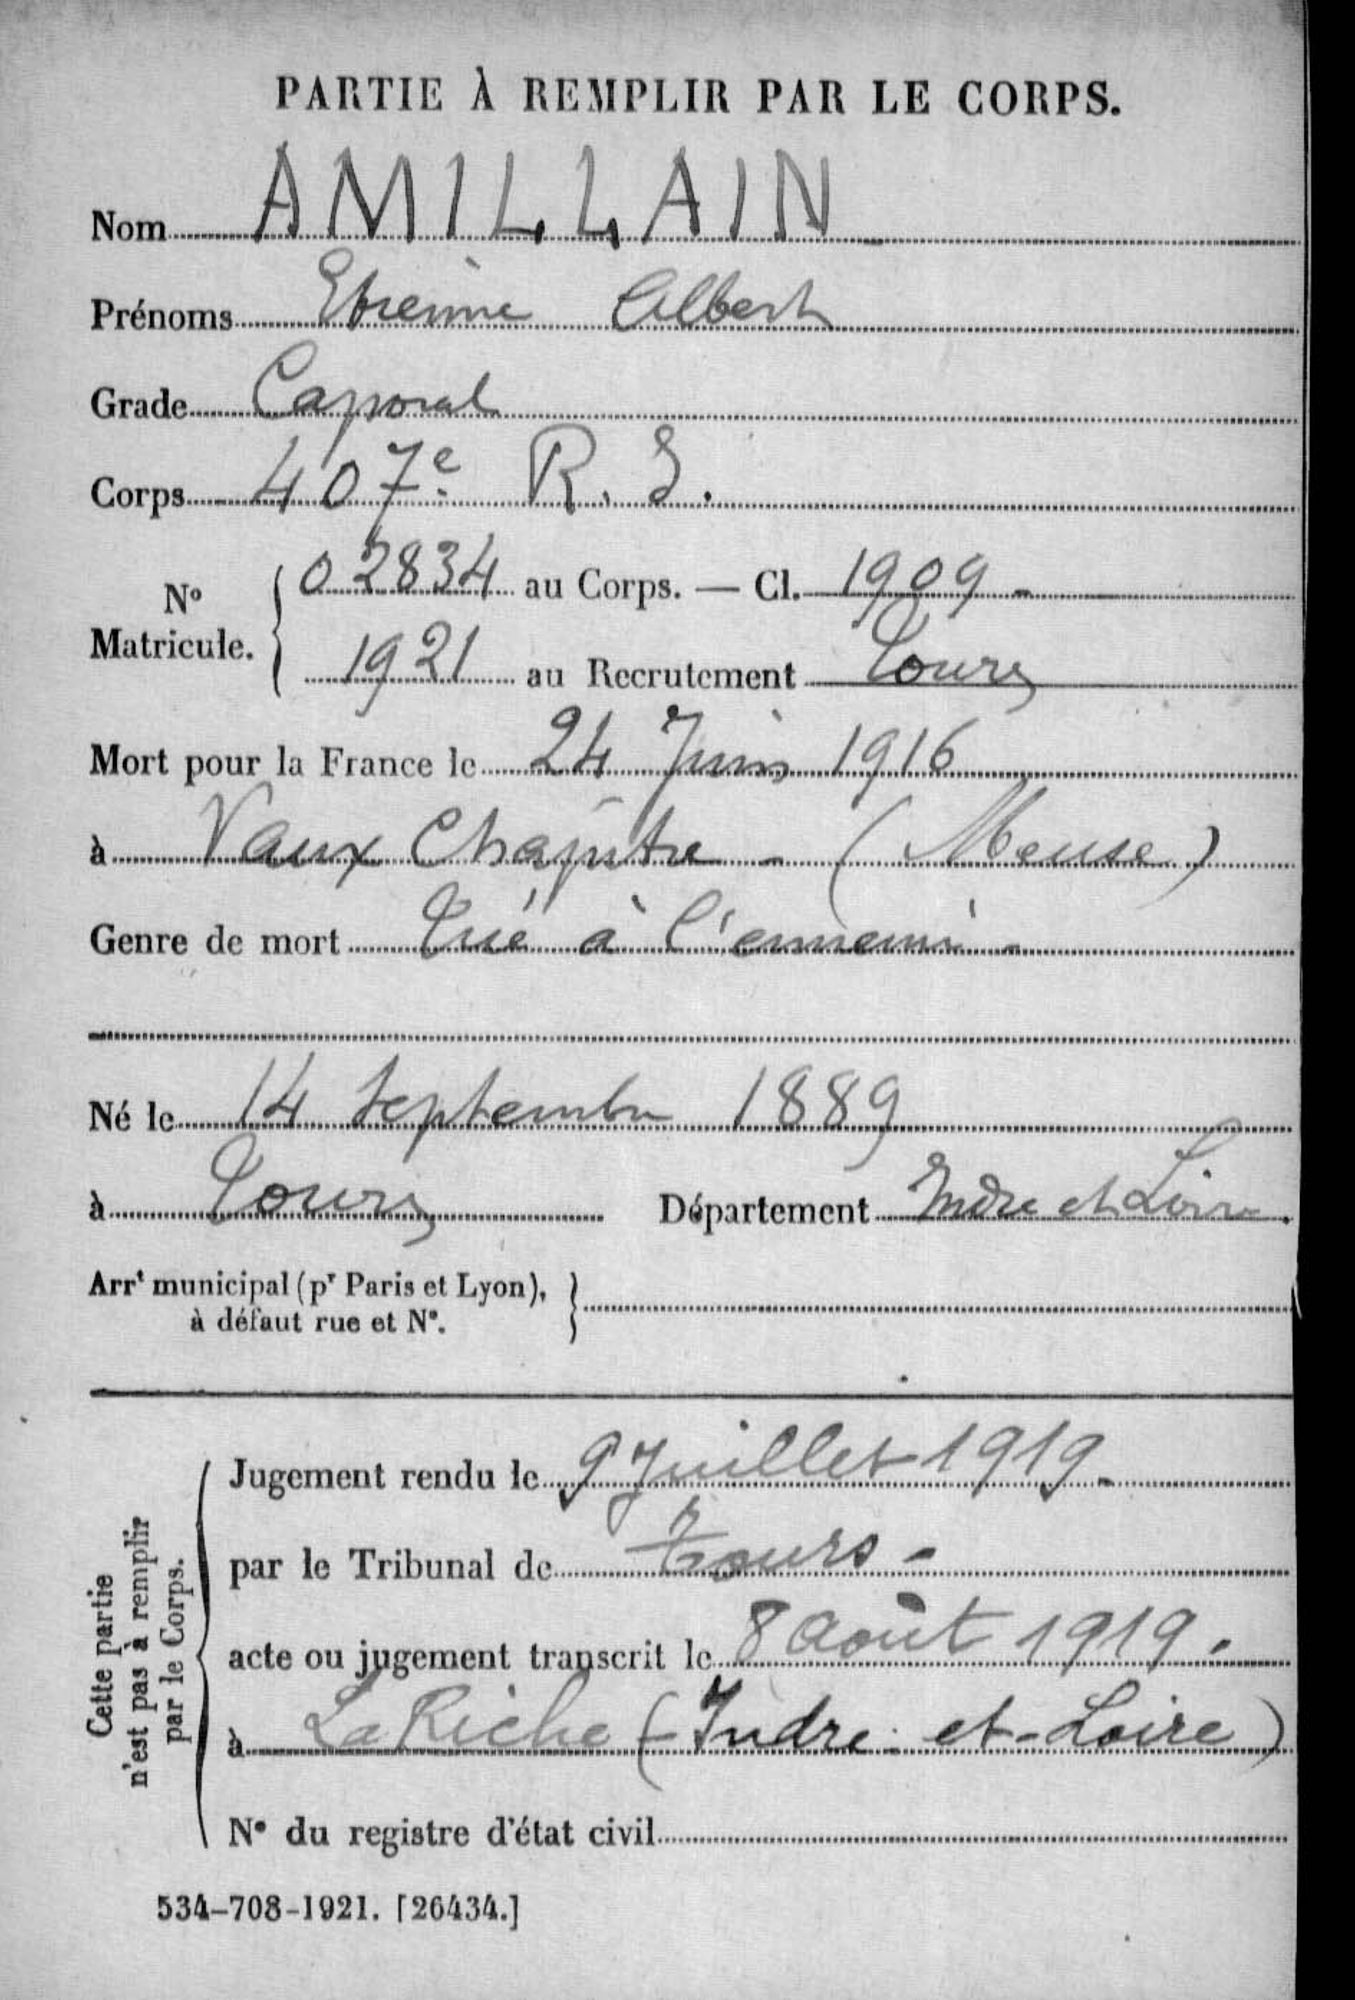 PARTIE À REMPLIR PAR LE CORPS.
Nom AMILLAIN
Prénoms Etienne Albert
Grade Caporal
Corps 407e R. I.
N° Matricule. 02834 au Corps. — Cl. 1909 -
1921 au Recrutement Tours
Mort pour la France le 24 Juin 1916
à Vaux Chapitre - (Meuse)
Genre de mort Tué à l'ennemi -
Né le 14 Septembre 1889
à Tours Département Indre et Loire.
Arrt municipal (pr Paris et Lyon),
à défaut rue et N°.
Cette partie
n'est pas à remplir
par le Corps.
Jugement rendu le 9 Juillet 1919.
par le Tribunal de Tours -
acte ou jugement transcrit le 8 août 1919.
à La Riche (Indre-et-Loire)
N° du registre d'état civil
534-708-1921. [26434.]